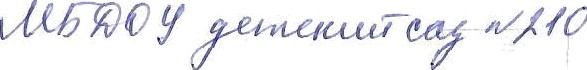 МБДОУ детский сад №210